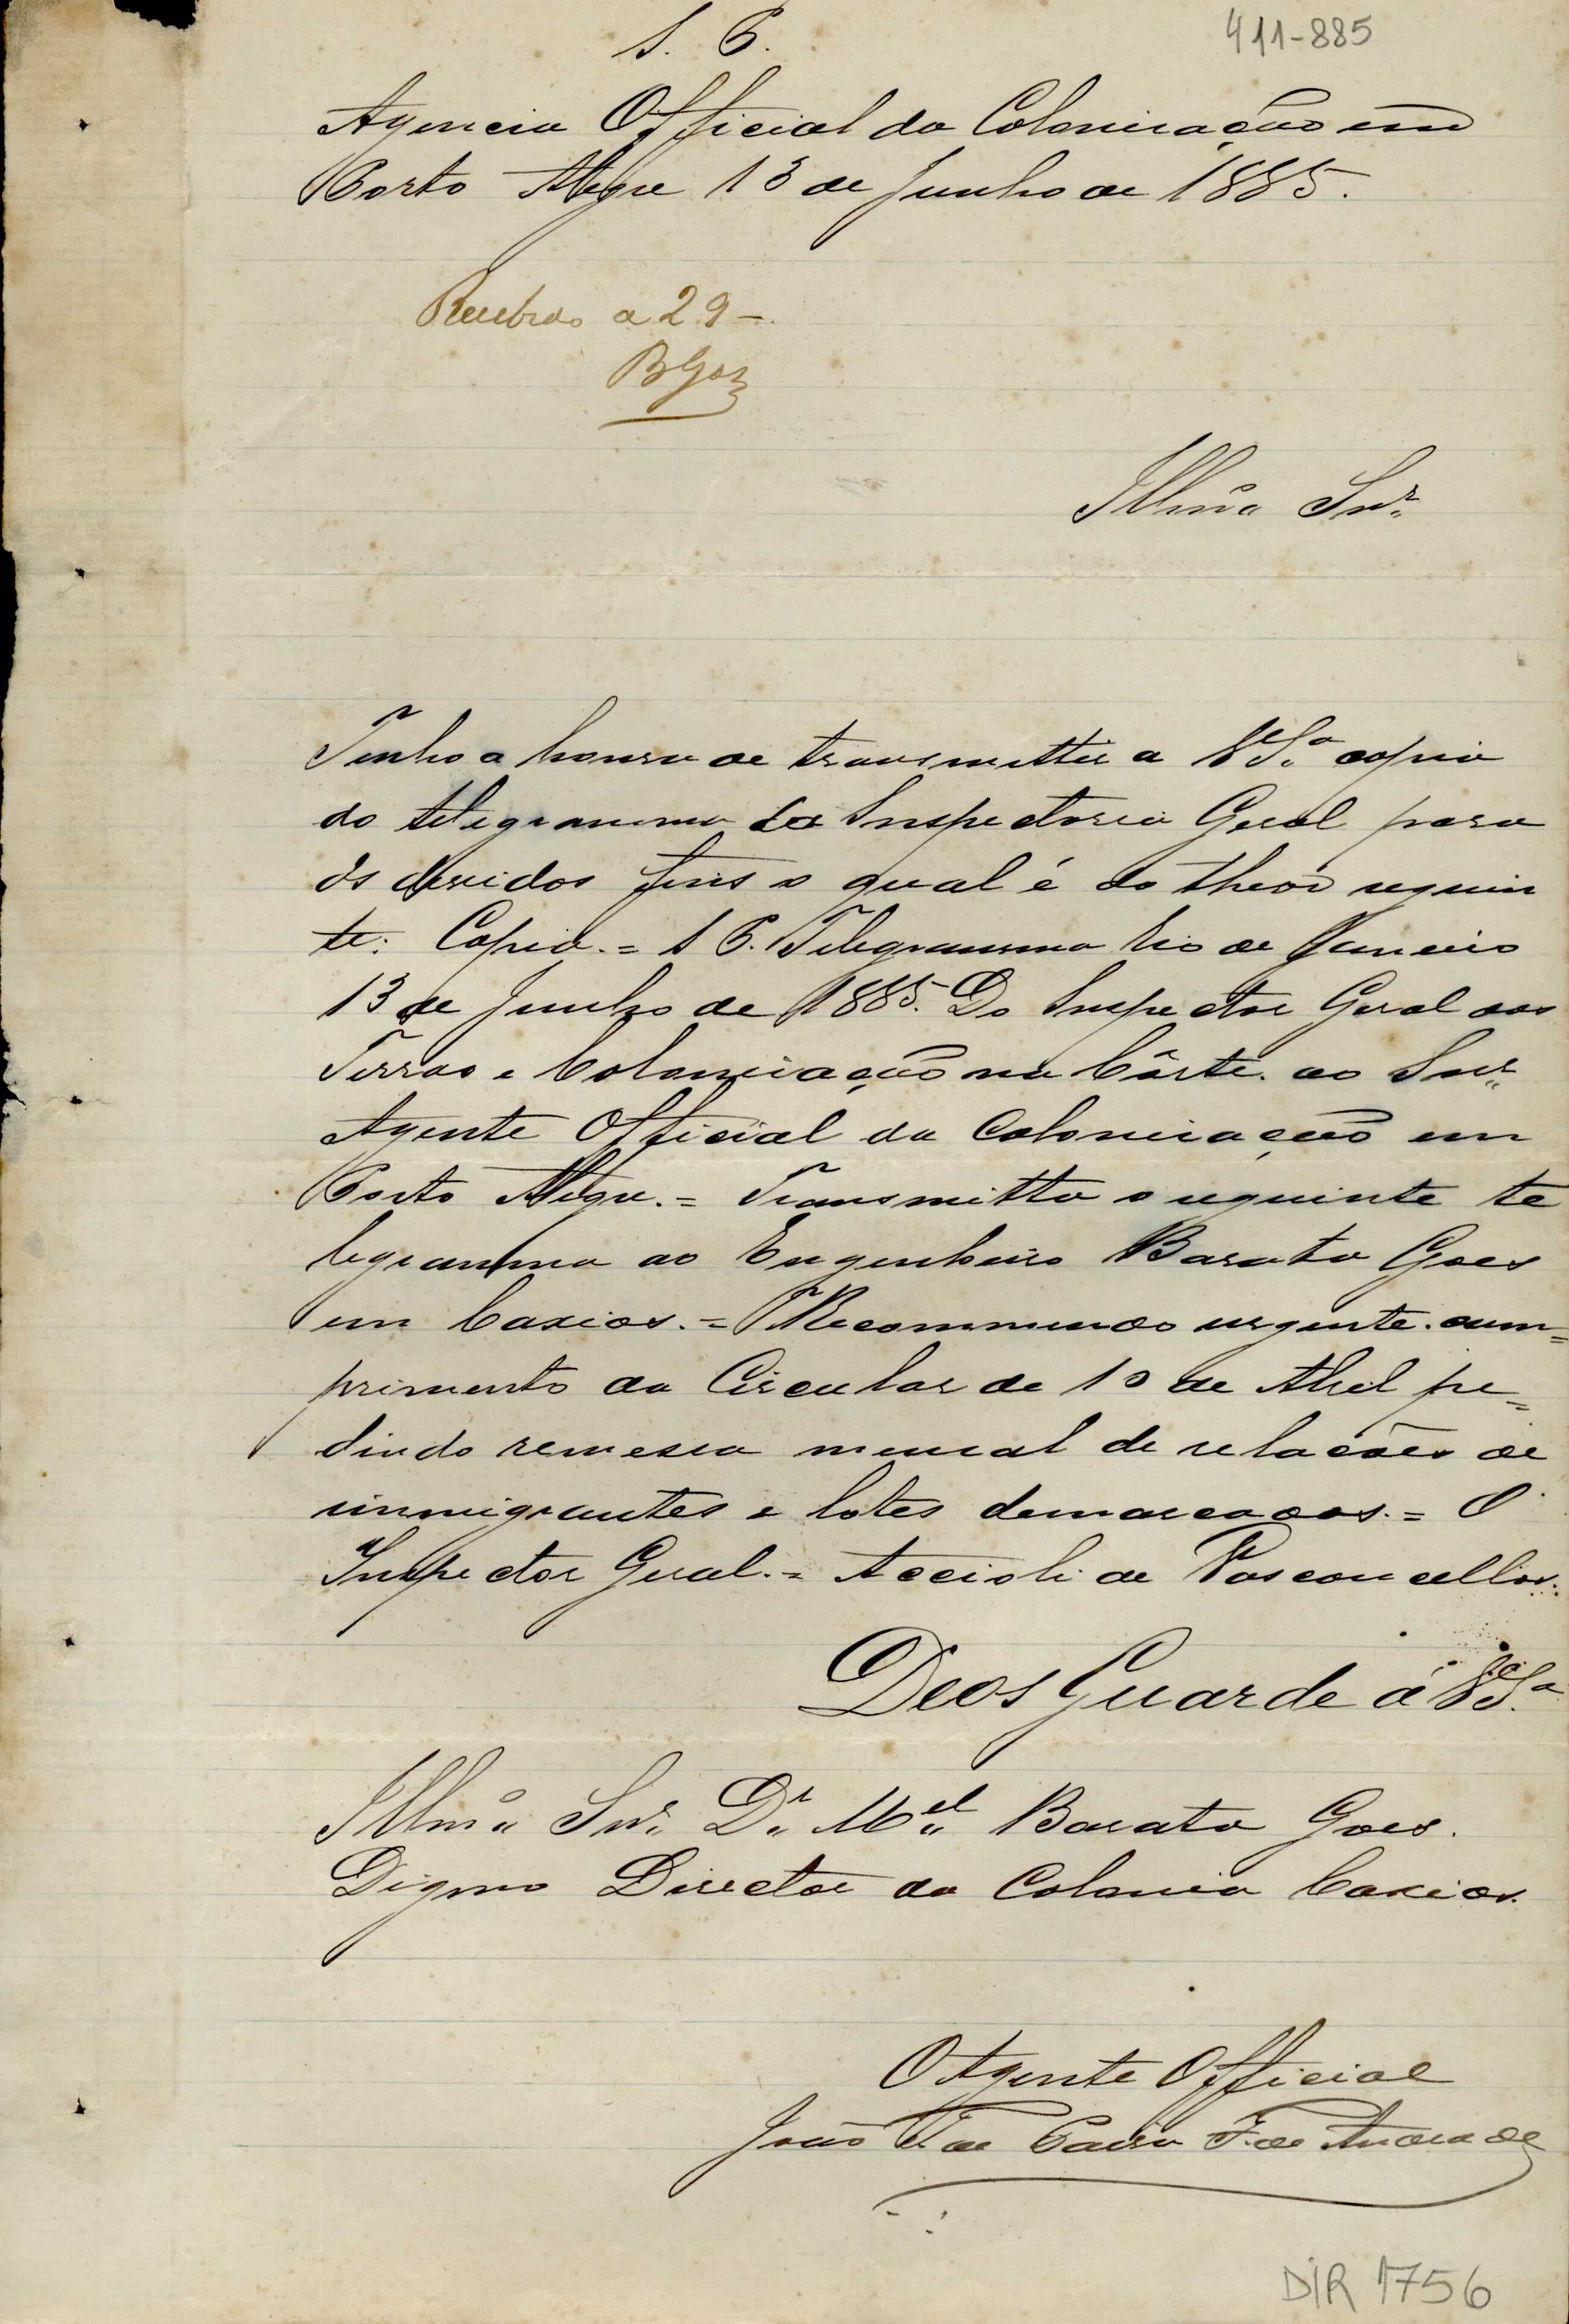 S. P.
411-885
Agencia Official da Colonisação em
Porto Alegre 13 de Junho de 1885.
Recebido a 29 -
BGoes
Illmo. Snr.
Tenho a honra de transmittir a V.Sa. copia
do telegramma da Inspectoria Geral para
os devidos fins o qual é do theor seguin
te: Copia. = S P. Telegramma Rio de Janeiro
13 de Junho de 1885. Do Inspector Geral das
Terras e Colonisação na Côrte. ao Snr.
Agente Official da Colonisação em
Porto Alegre. = Transmitta o seguinte te
legramma ao Engenheiro Barata Goes
em Caxias. = Recommendo urgente. cum=
primento da Circular de 10 de Abril pe=
dindo remessa mensal de relações de
immigrantes e lotes demarcados. = O
Inspector Geral. = Accioli de Vasconcellos.
Deos Guarde á V.Sa.
Illmo. Snr. Dr. Mel. Barata Goes.
Digno Director da Colonia Caxias.
O Agente Official
João de Andrade
DIR 1756